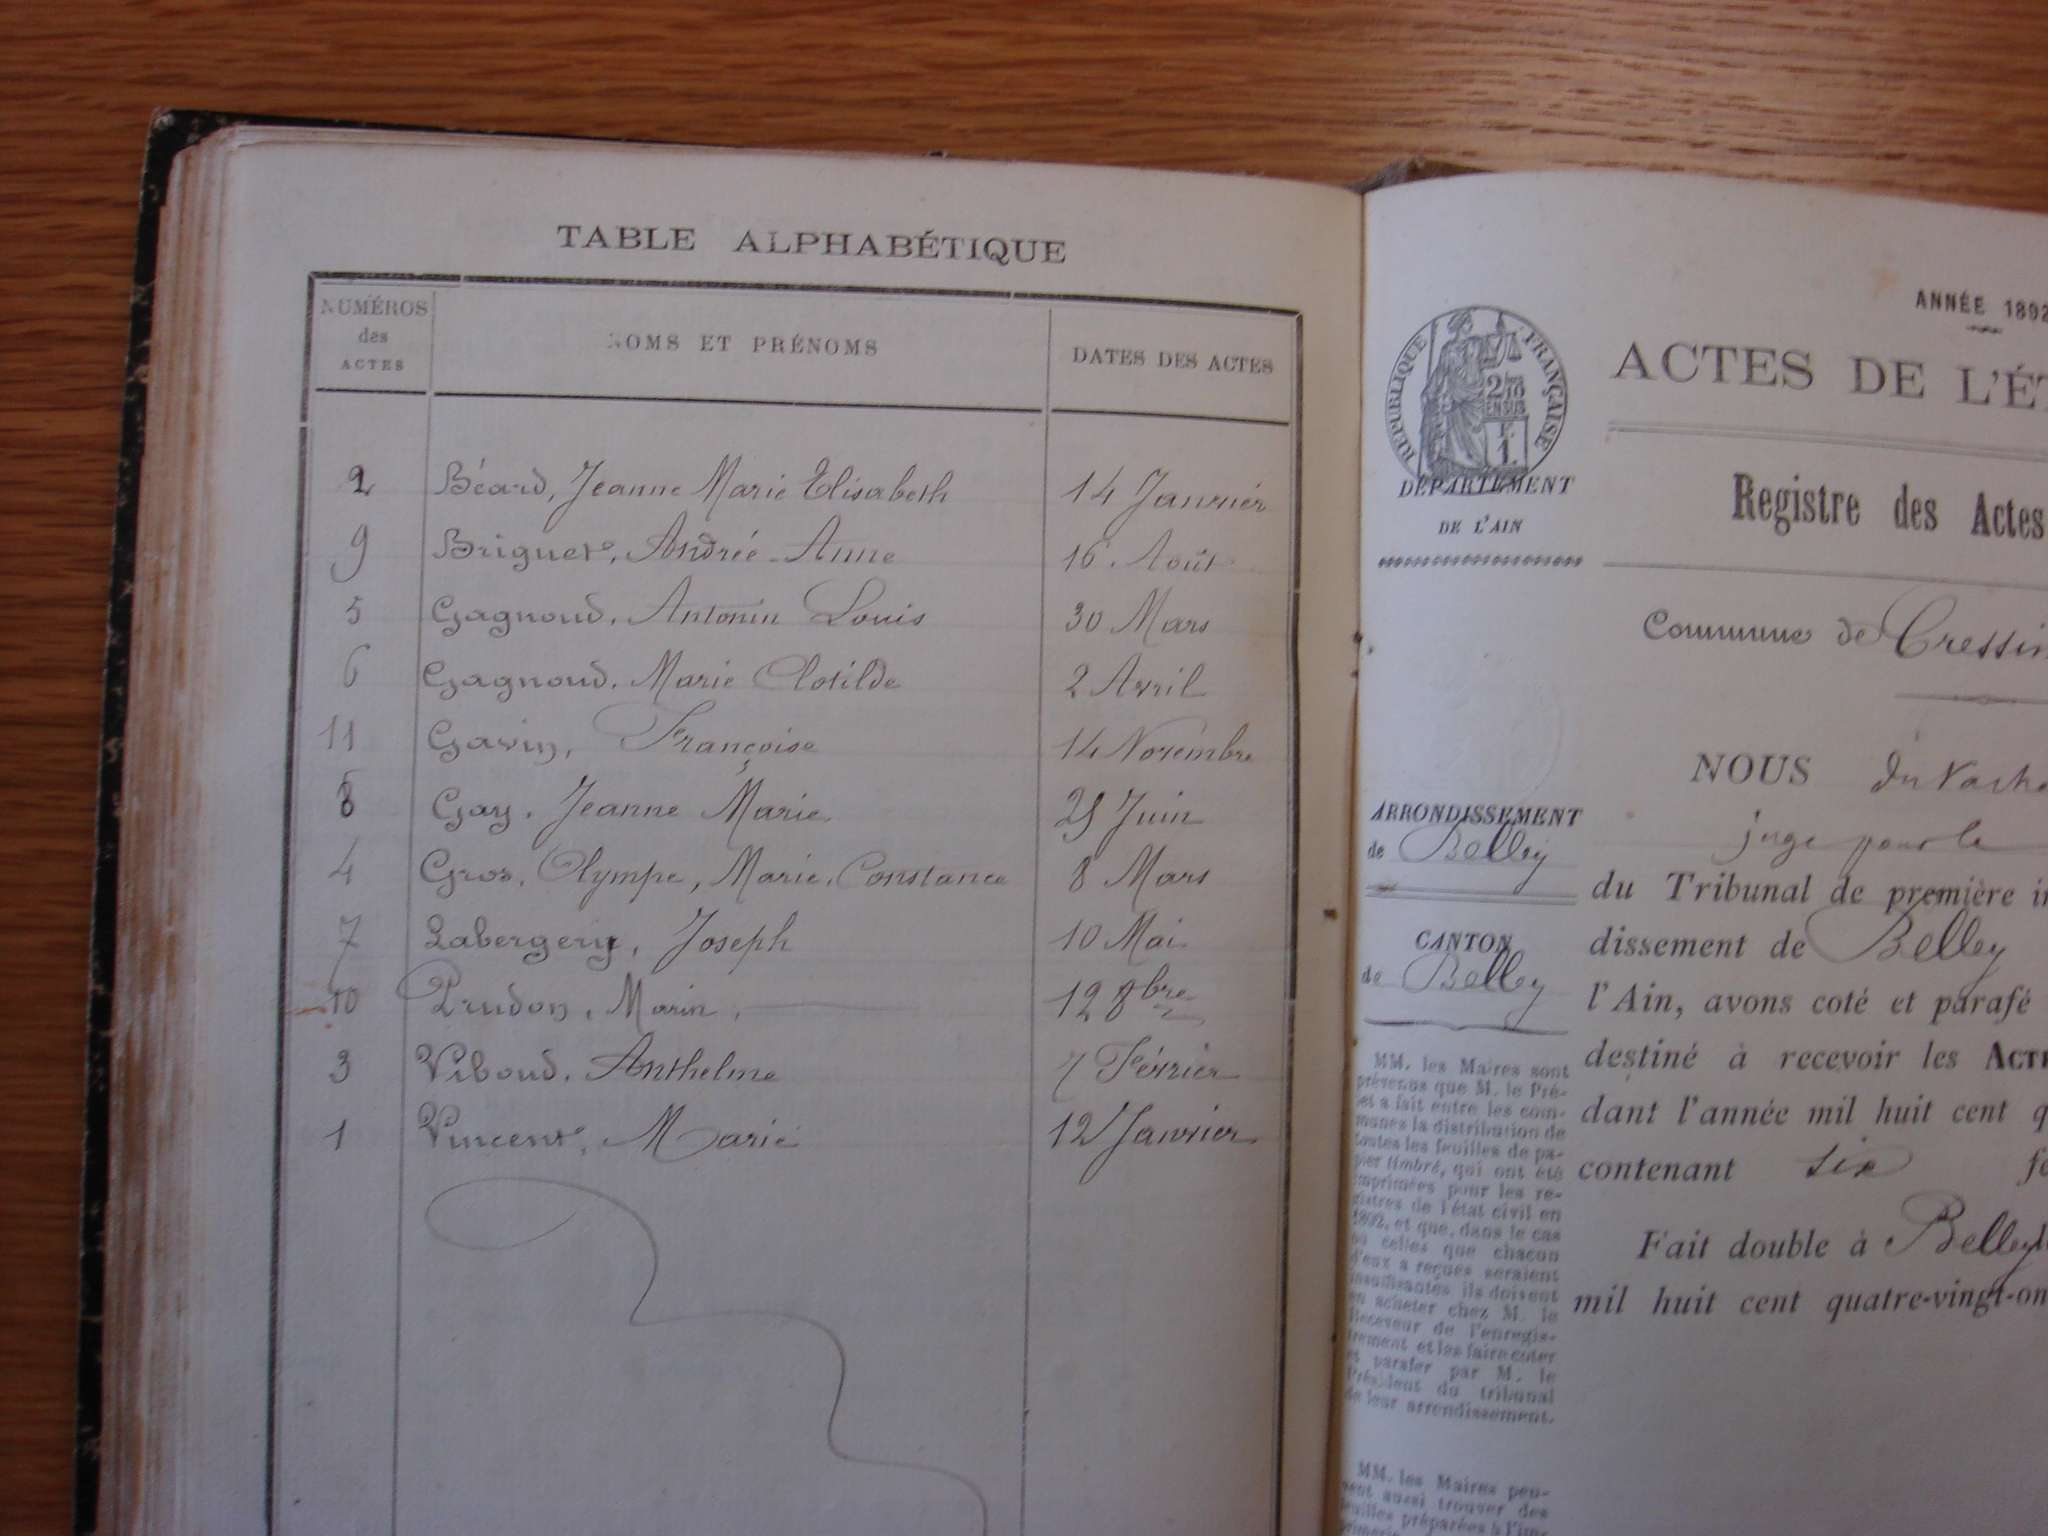 TABLE ALPHABÉTIQUE
NUMÉROS des ACTES NOMS ET PRÉNOMS DATES DES ACTES
2 Béard, Jeanne Marie Elisabeth 14 Janvier
9 Briguet, Andrée Anne 16 Août
5 Gagnoud, Antonin Louis 30 Mars
6 Gagnoud, Marie Clotilde 2 Avril
11 Gavin, Françoise 14 Novembre
8 Gay, Jeanne Marie 25 Juin
4 Gros, Olympe, Marie, Constance 8 Mars
7 Labergery, Joseph 10 Mai
10 Prudon, Marin, 12 8bre
3 Viboud, Anthelme 7 Février
1 Vincent, Marie 12 Janvier
ANNÉE 1892
RÉPUBLIQUE FRANÇAISE
DÉPARTEMENT
DE L'AIN
ARRONDISSEMENT
de Belley
CANTON
de Belley
MM. les Maires sont
prévenus que M. le Pré-
fet a fait entre les com-
munes la distribution de
toutes les feuilles de pa-
pier timbré, qui ont été
imprimées pour les re-
gistres de l'état civil en
1892, et que, dans le cas
où celles que chacun
d'eux a reçues seraient
insuffisantes ils doivent
en acheter chez M. le
Receveur de l'enregis-
trement et les faire coter
et parafer par M. le
Président du tribunal
de leur arrondissement.
MM. les Maires peu-
vent aussi trouver des
feuilles préparées à l'im-
ACTES DE L'ÉT
Registre des Actes
Commune de Cressin
NOUS
juge pour le
du Tribunal de première in
dissement de Belley
l'Ain, avons coté et parafé
destiné à recevoir les ACTE
dant l'année mil huit cent q
contenant six fe
Fait double à Belley
mil huit cent quatre-vingt-on